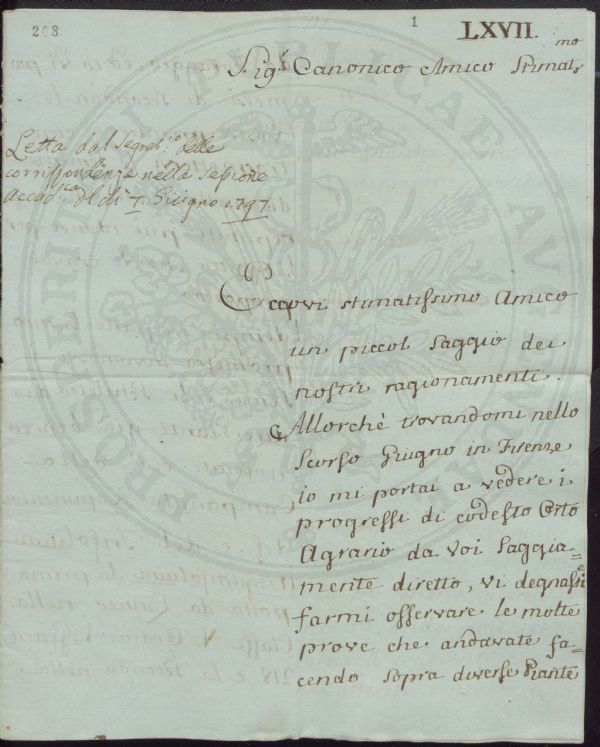 268.
1
LXVII.
Sig.r Canonico Amico Stimat.mo
Letta dal Segret.o delle
corrispondenze nella Sessione
Accad.ca del dì 7. Giugno 1797.
Eccovi stimatissimo Amico
un piccol Saggio dei
nostri ragionamenti.
Allorchè trovandomi nello
Scorso Giugno in Firenze
io mi portai a vedere i
progressi di codesto Orto
Agrario da voi Saggia=
mente diretto, vi degnaste
farmi osservare le molte
prove che andavate fa=
cendo sopra diverse Piante
PROSPERITATI PUBLICAE AUGENDAE